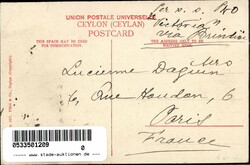 Per s. s. P&O
UNION POSTALE UNIVERSELLE
"Victoria"
CEYLON (CEYLAN)
via Brindisi
POSTCARD
THIS SPACE MAY BE USED
FOR CORRESPONDENCE.
THE ADDRESS ONLY TO BE
WRITTEN HERE.
Lucienne Daquin
6, Rue Houdon, 6
Paris
France
0533501209
0
www.slade-auktionen.de